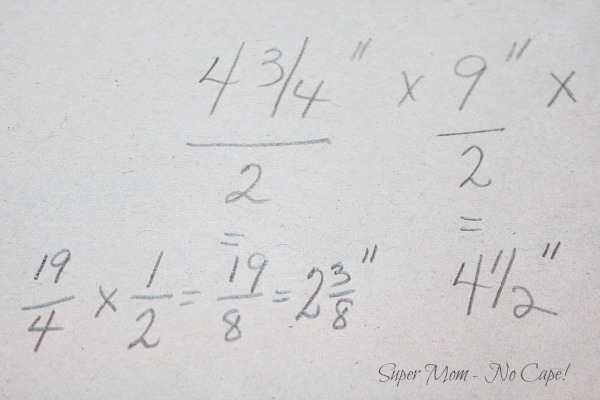 4 3/4" x 9" x
2 2
= =
19/4 x 1/2 = 19/8 = 2 3/8" 4 1/2"
Super Mom - No Cape!